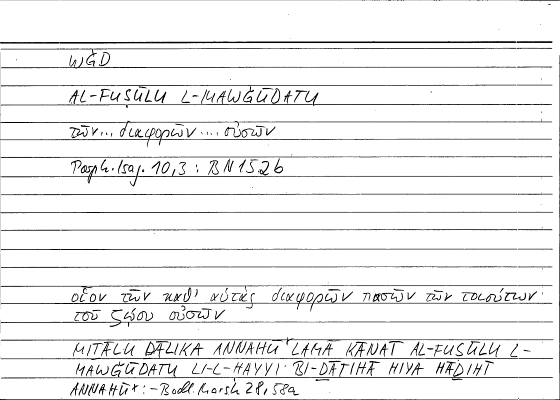 WǦD
AL-FUṢŪLU L-MAWǦŪDATU
τῶν... διαφορῶν... οὐσῶν
Porph. Isag. 10,3 : BN 152b
οἷον τῶν καθ' αὑτὰς διαφορῶν πασῶν τῶν τοιούτων
τοῦ ζῴου οὐσῶν
MITĀLU DĀLIKA ANNAHŪ* LAMĀ KĀNAT AL-FUṢŪLU L-
MAWǦŪDATU LI-L-HAYYI BI-ḎĀTIHĀ HIYA HĀḎIHT
ANNAHŪ*: – Bodl. Marsh 28, 58a